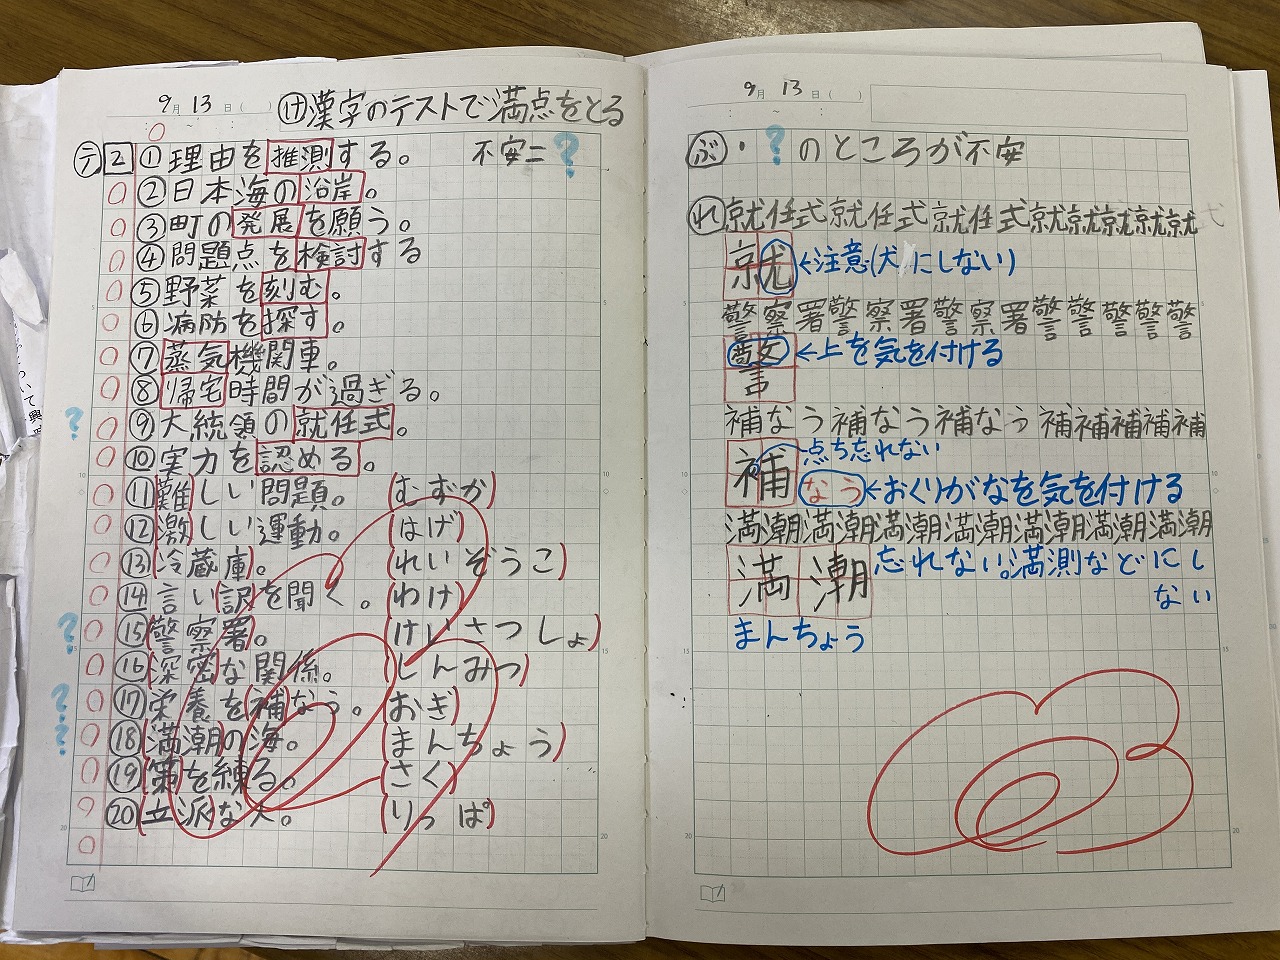 9月13日( )
㋘漢字のテストで満点をとる
㋢2①理由を推測する。 不安=?
②日本海の沿岸。
③町の発展を願う。
④問題点を検討する
⑤野菜を刻む。
⑥病防を探す。
⑦蒸気機関車。
⑧帰宅時間が過ぎる。
?⑨大統領の就任式。
⑩実力を認める。
⑪難しい問題。(むずか)
⑫激しい運動。(はげ)
⑬冷蔵庫。(れいぞうこ)
⑭言い訳を聞く。(わけ)
?⑮警察署。(けいさつしょ)
⑯深密な関係。(しんみつ)
?⑰栄養を補なう。(おぎ)
?⑱満潮の海。(まんちょう)
⑲策を練る。(さく)
⑳立派な人。(りっぱ)
9月13日( )
ぶ・?のところが不安
れ就任式就任式就任式就就就就就
就←注意(犬にしない)
警察署警察署警察署警警警警警
警←上を気を付ける
補なう補なう補なう補補補補補
補 点ち忘れない
なう←おくりがなを気を付ける
満潮満潮満潮満潮満潮満潮満潮
満潮 忘れない。満測などにし
ない
まんちょう